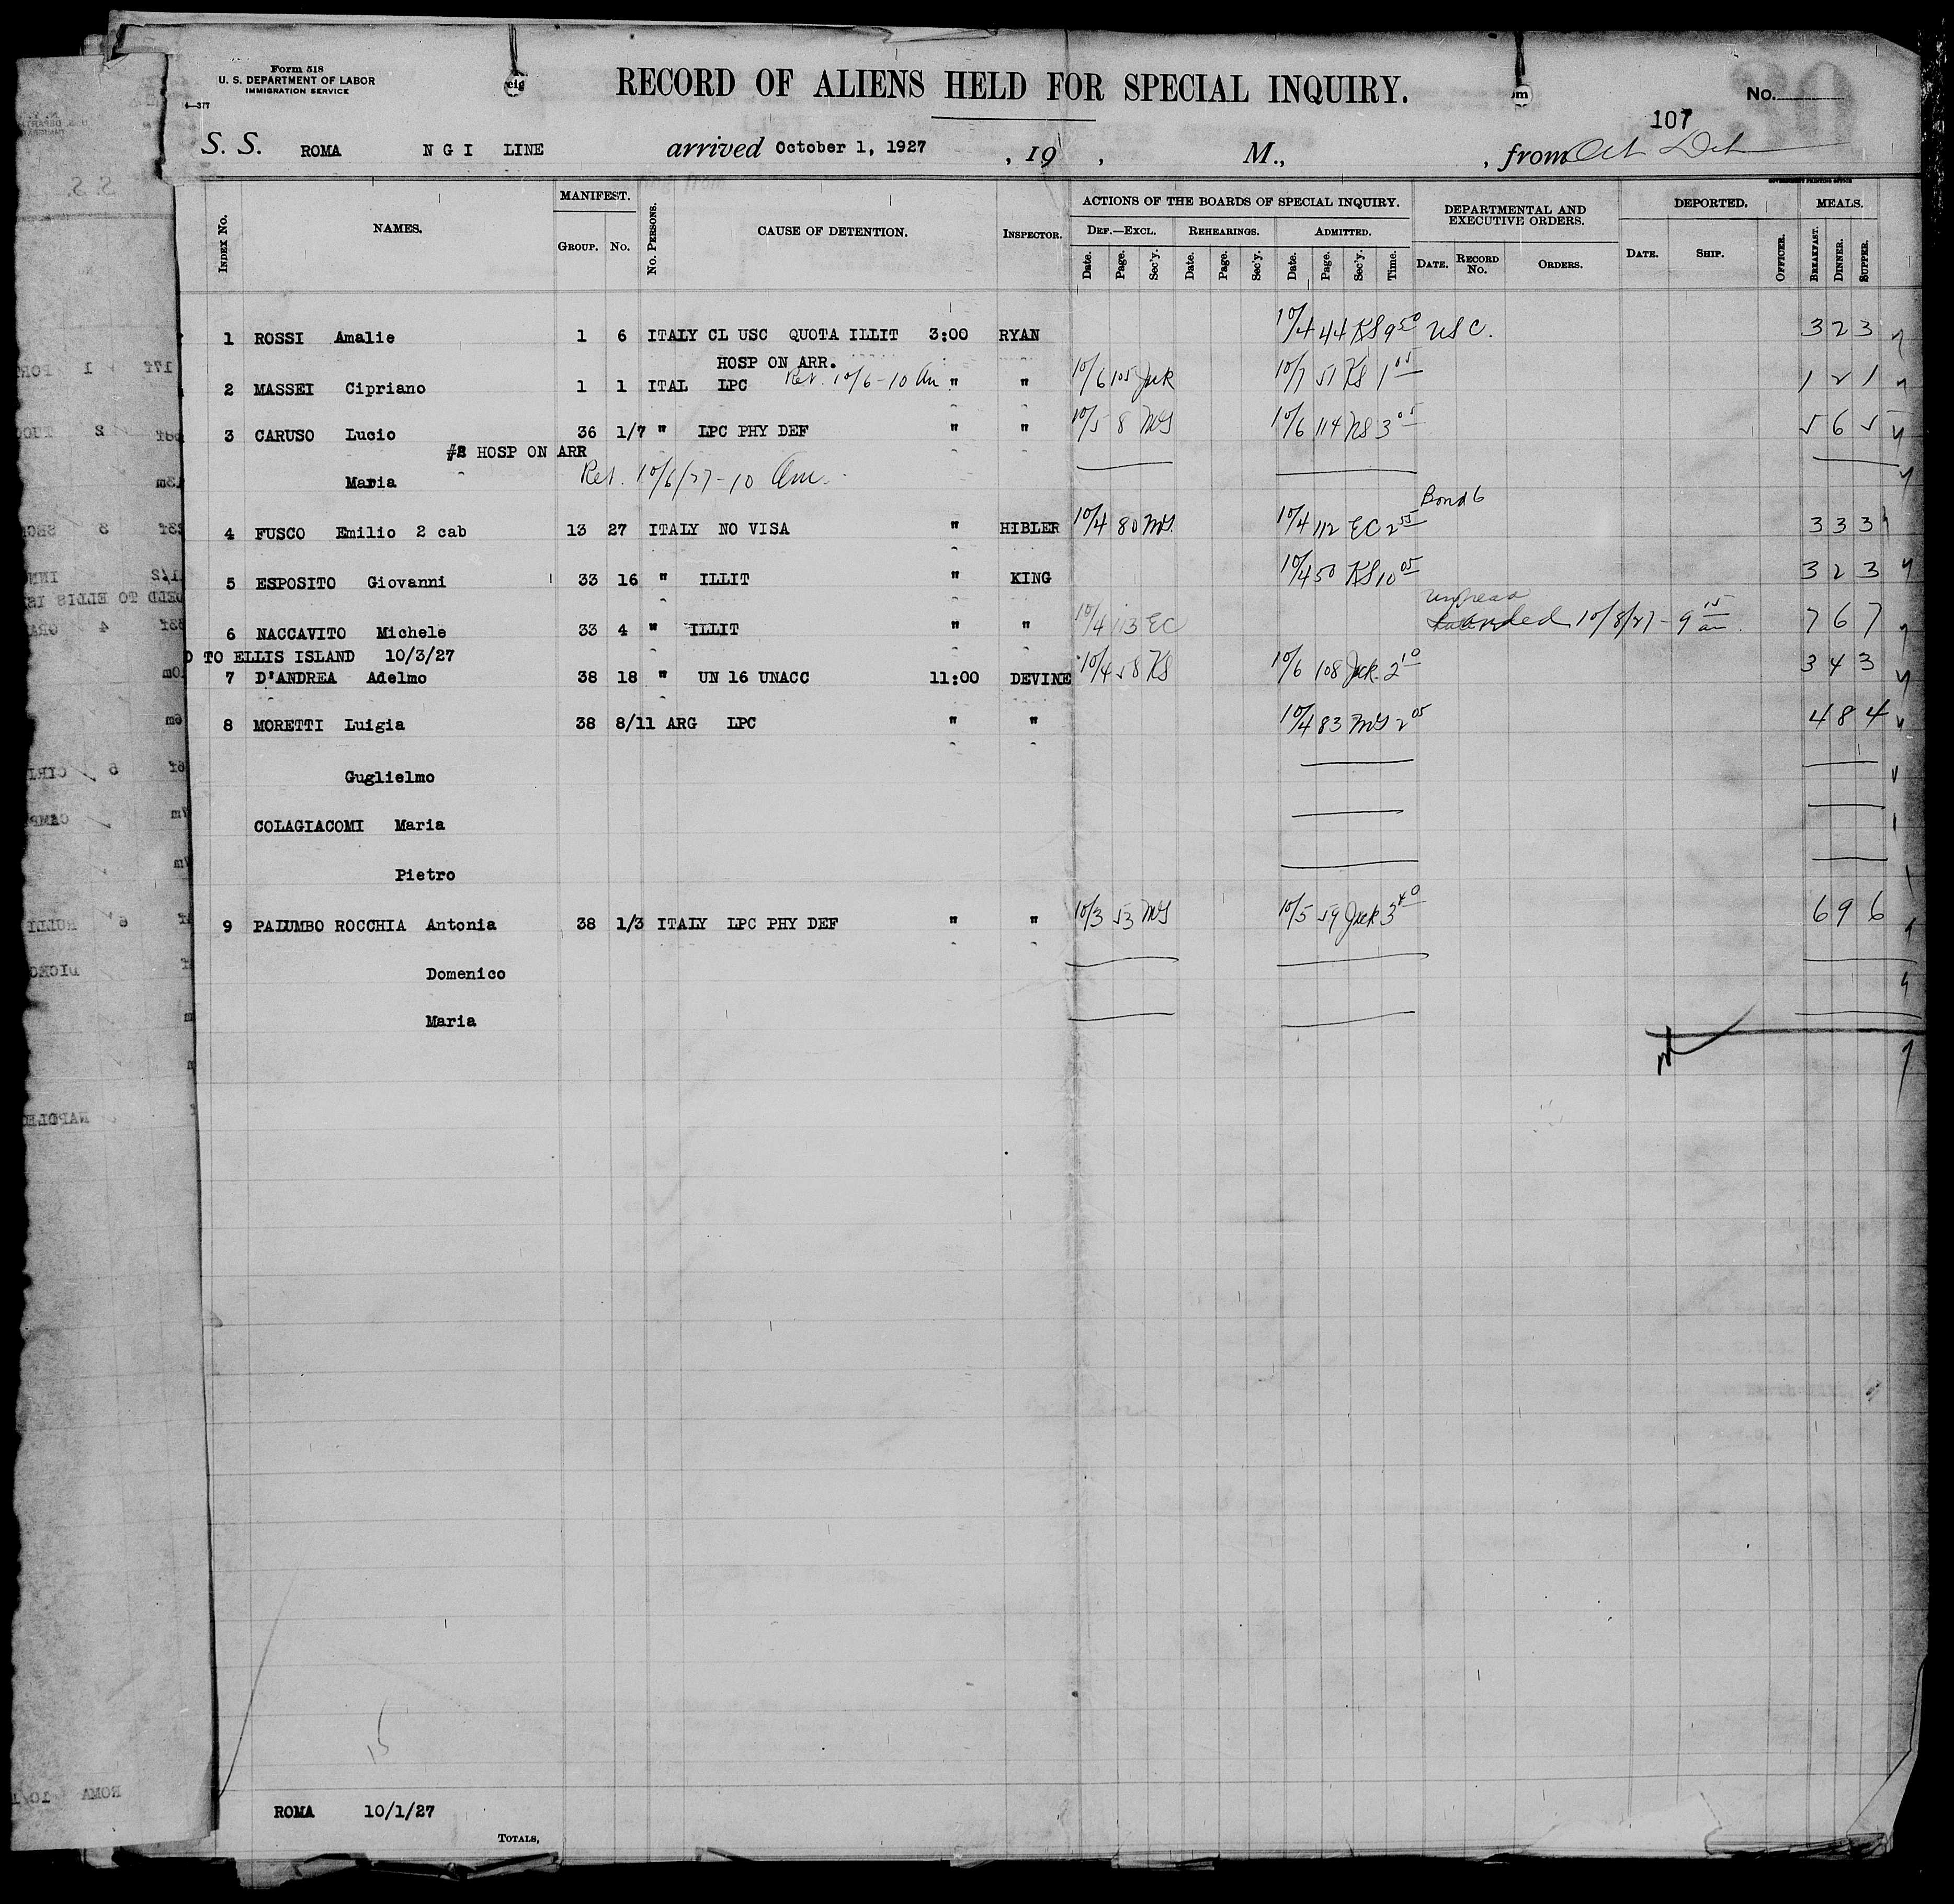 Form 518
U. S. DEPARTMENT OF LABOR
IMMIGRATION SERVICE
4—377
RECORD OF ALIENS HELD FOR SPECIAL INQUIRY.
No.
107
S. S. ROMA N G I LINE arrived October 1, 1927 , 19 , M., , from
GOVERNMENT PRINTING OFFICE
Index No. NAMES. MANIFEST. Group. No. No. Persons. CAUSE OF DETENTION. Inspector. ACTIONS OF THE BOARDS OF SPECIAL INQUIRY. DEPARTMENTAL AND EXECUTIVE ORDERS. DEPORTED. MEALS.
Def.—Excl. Rehearings. Admitted.
Date. Page. Sec'y. Date. Page. Sec'y. Date. Page. Sec'y. Time. Date. Record No. Orders. Date. Ship. Officer. Breakfast. Dinner. Supper.
1 ROSSI Amalie 1 6 ITALY CL USC QUOTA ILLIT 3:00 RYAN 10/4 44 KS 9 50 USC. 3 2 3
HOSP ON ARR.
2 MASSEI Cipriano 1 1 ITAL LPC Ret. 10/6-10 Am " " 10/6 105 10/7 51 KS 1 05 1 2 1
3 CARUSO Lucio 36 1/7 " LPC PHY DEF " " 10/5 8 10/6 114 3 05 5 6 5
#2 HOSP ON ARR
Maria Ret. 10/6/27-10 Am.
Bond 6
4 FUSCO Emilio 2 cab 13 27 ITALY NO VISA " HIBLER 10/4 80 10/4 112 EC 2 55 3 3 3
5 ESPOSITO Giovanni 33 16 " ILLIT " KING 10/4 50 KS 10 05 3 2 3
6 NACCAVITO Michele 33 4 " ILLIT " " 10/4 113 EC 10/8/27-9 15 am. 7 6 7
D TO ELLIS ISLAND 10/3/27
7 D'ANDREA Adelmo 38 18 " UN 16 UNACC 11:00 DEVINE 10/4 58 KS 10/6 108 2 10 3 4 3
8 MORETTI Luigia 38 8/11 ARG LPC " " 10/4 83 2 05 4 8 4
Guglielmo
COLAGIACOMI Maria
Pietro
9 PALUMBO ROCCHIA Antonia 38 1/3 ITALY LPC PHY DEF " " 10/3 53 10/5 59 3 40 6 9 6
Domenico
Maria
15
ROMA 10/1/27
Totals,